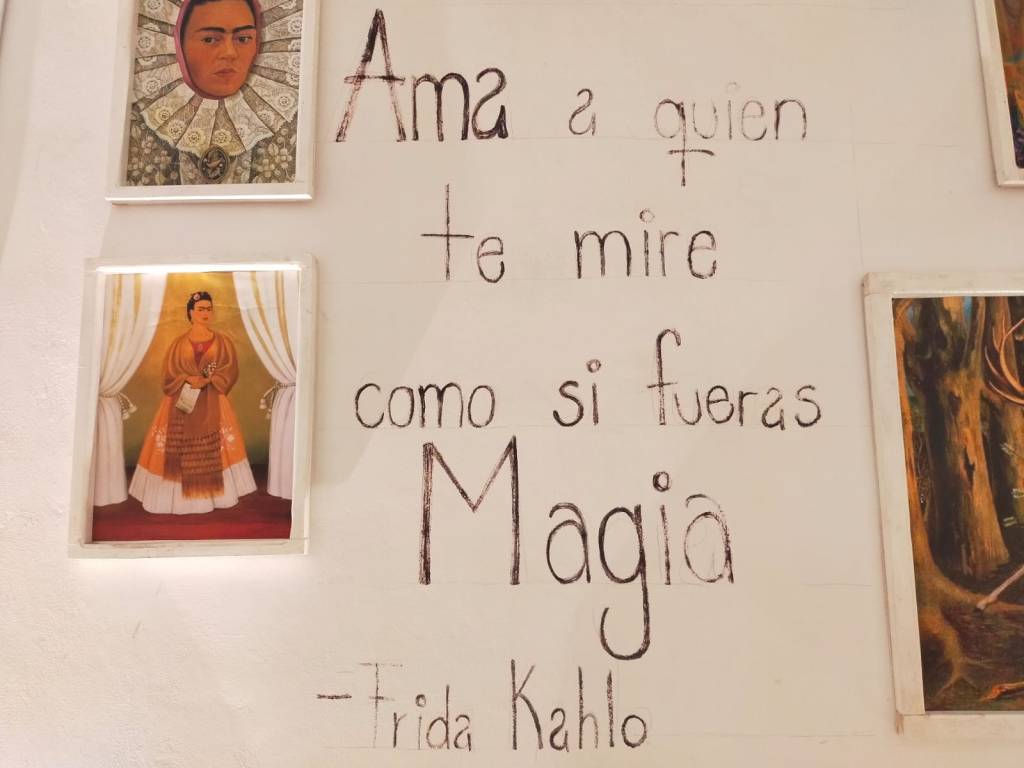 Ama a quien
te mire
como si fueras
Magia
-Frida Kahlo